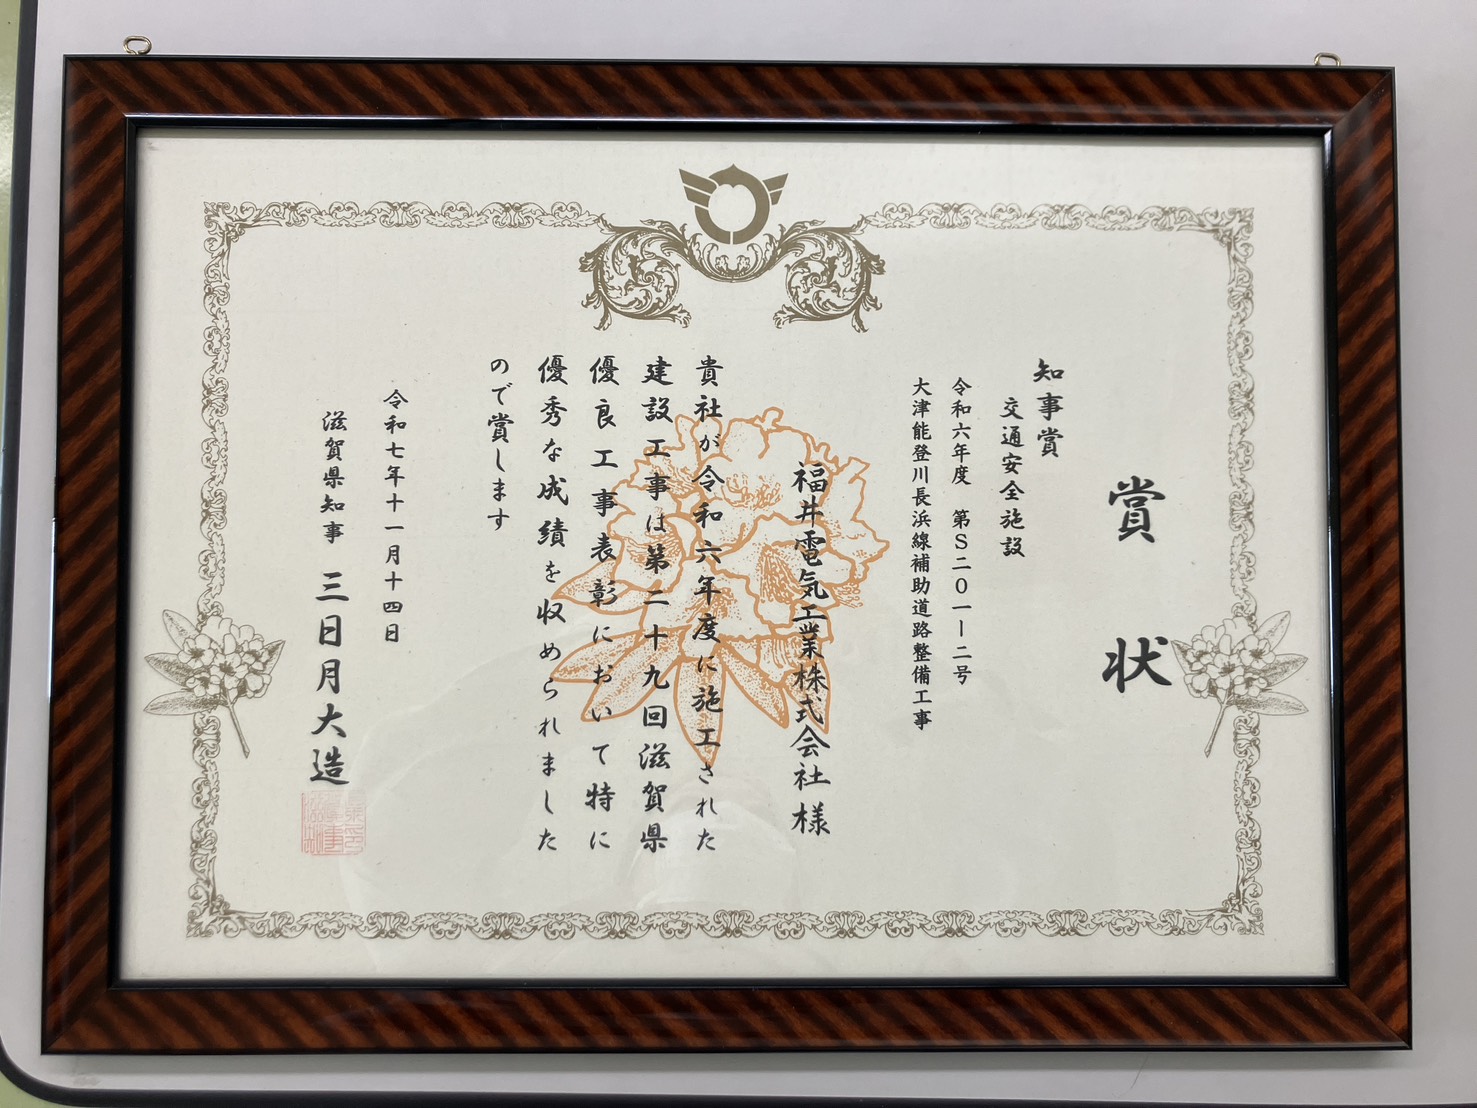 賞状
知事賞
交通安全施設
令和六年度 第S二〇一ー二号
大津能登川長浜線補助道路整備工事
福井電気工業株式会社様
貴社が令和六年度に施工された
建設工事は第二十九回滋賀県
優良工事表彰において特に
優秀な成績を収められました
ので賞します
令和七年十一月十四日
滋賀県知事 三日月大造